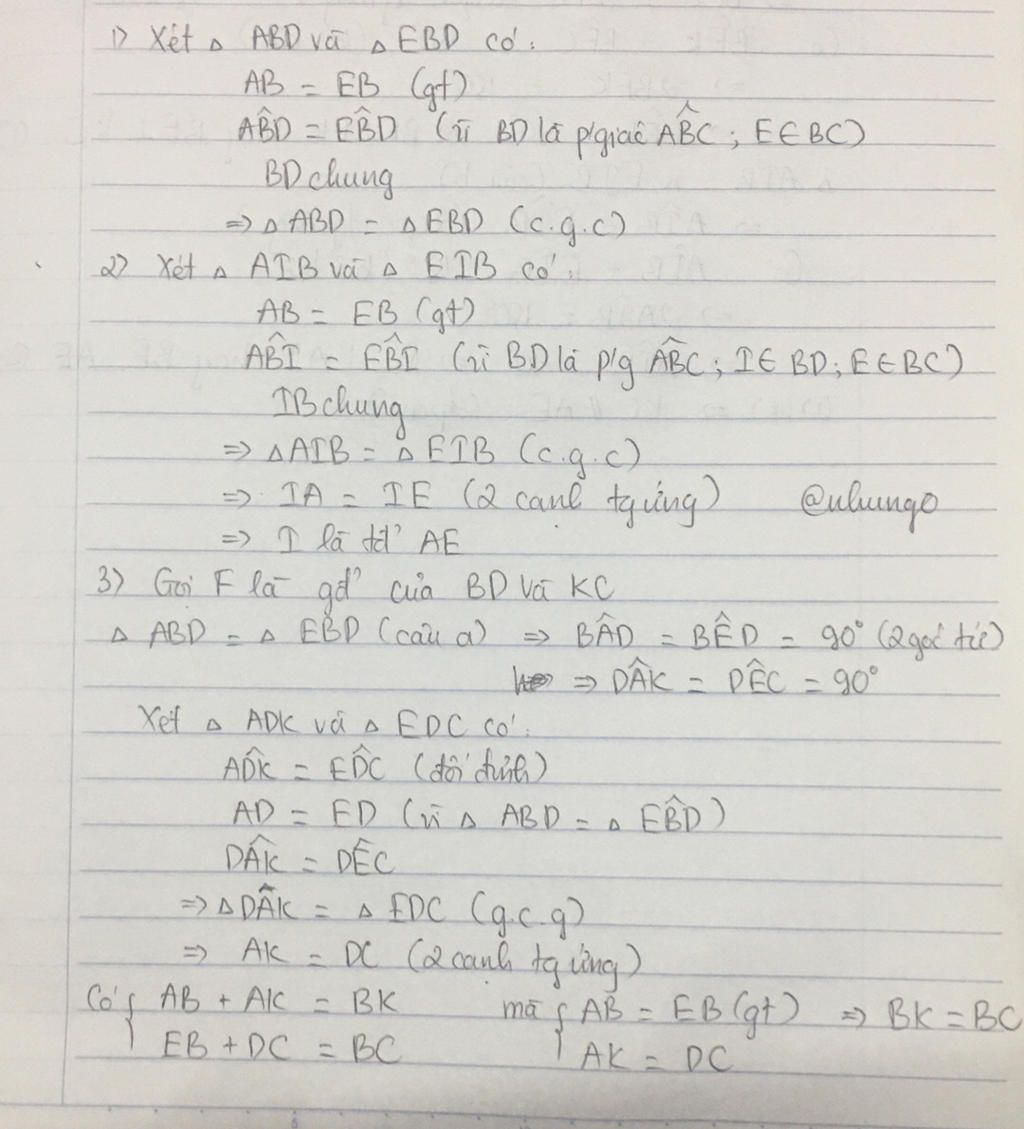 1) Xét △ ABD và △ EBD có:
AB = EB (gt)
AB̂D = EB̂D (vì BD là p/giác AB̂C ; E ∈ BC)
BD chung
⇒ △ ABD = △ EBD (c.g.c)
2) Xét △ AIB và △ EIB có:
AB = EB (gt)
AB̂I = EB̂I (vì BD là p/g AB̂C ; I ∈ BD ; E ∈ BC)
IB chung
⇒ △AIB = △ EIB (c.g.c)
⇒ IA = IE (2 cạnh tg ứng) @nhungo
⇒ I là tđ' AE
3) Gọi F là gđ' của BD và KC
△ ABD = △ EBD (câu a) ⇒ BÂD = BÊD = 90° (2 góc tứ)
⇒ DÂK = DÊC = 90°
Xét △ ADK và △ EDC có:
AD̂K = ED̂C (đối đỉnh)
AD = ED (vì △ ABD = △ EB̂D)
DÂK = DÊC
⇒ △DÂK = △ EDC (g.c.g)
⇒ AK = DC (2 cạnh tg ứng)
Có { AB + AK = BK mà { AB = EB (gt) ⇒ BK = BC
EB + DC = BC AK = DC